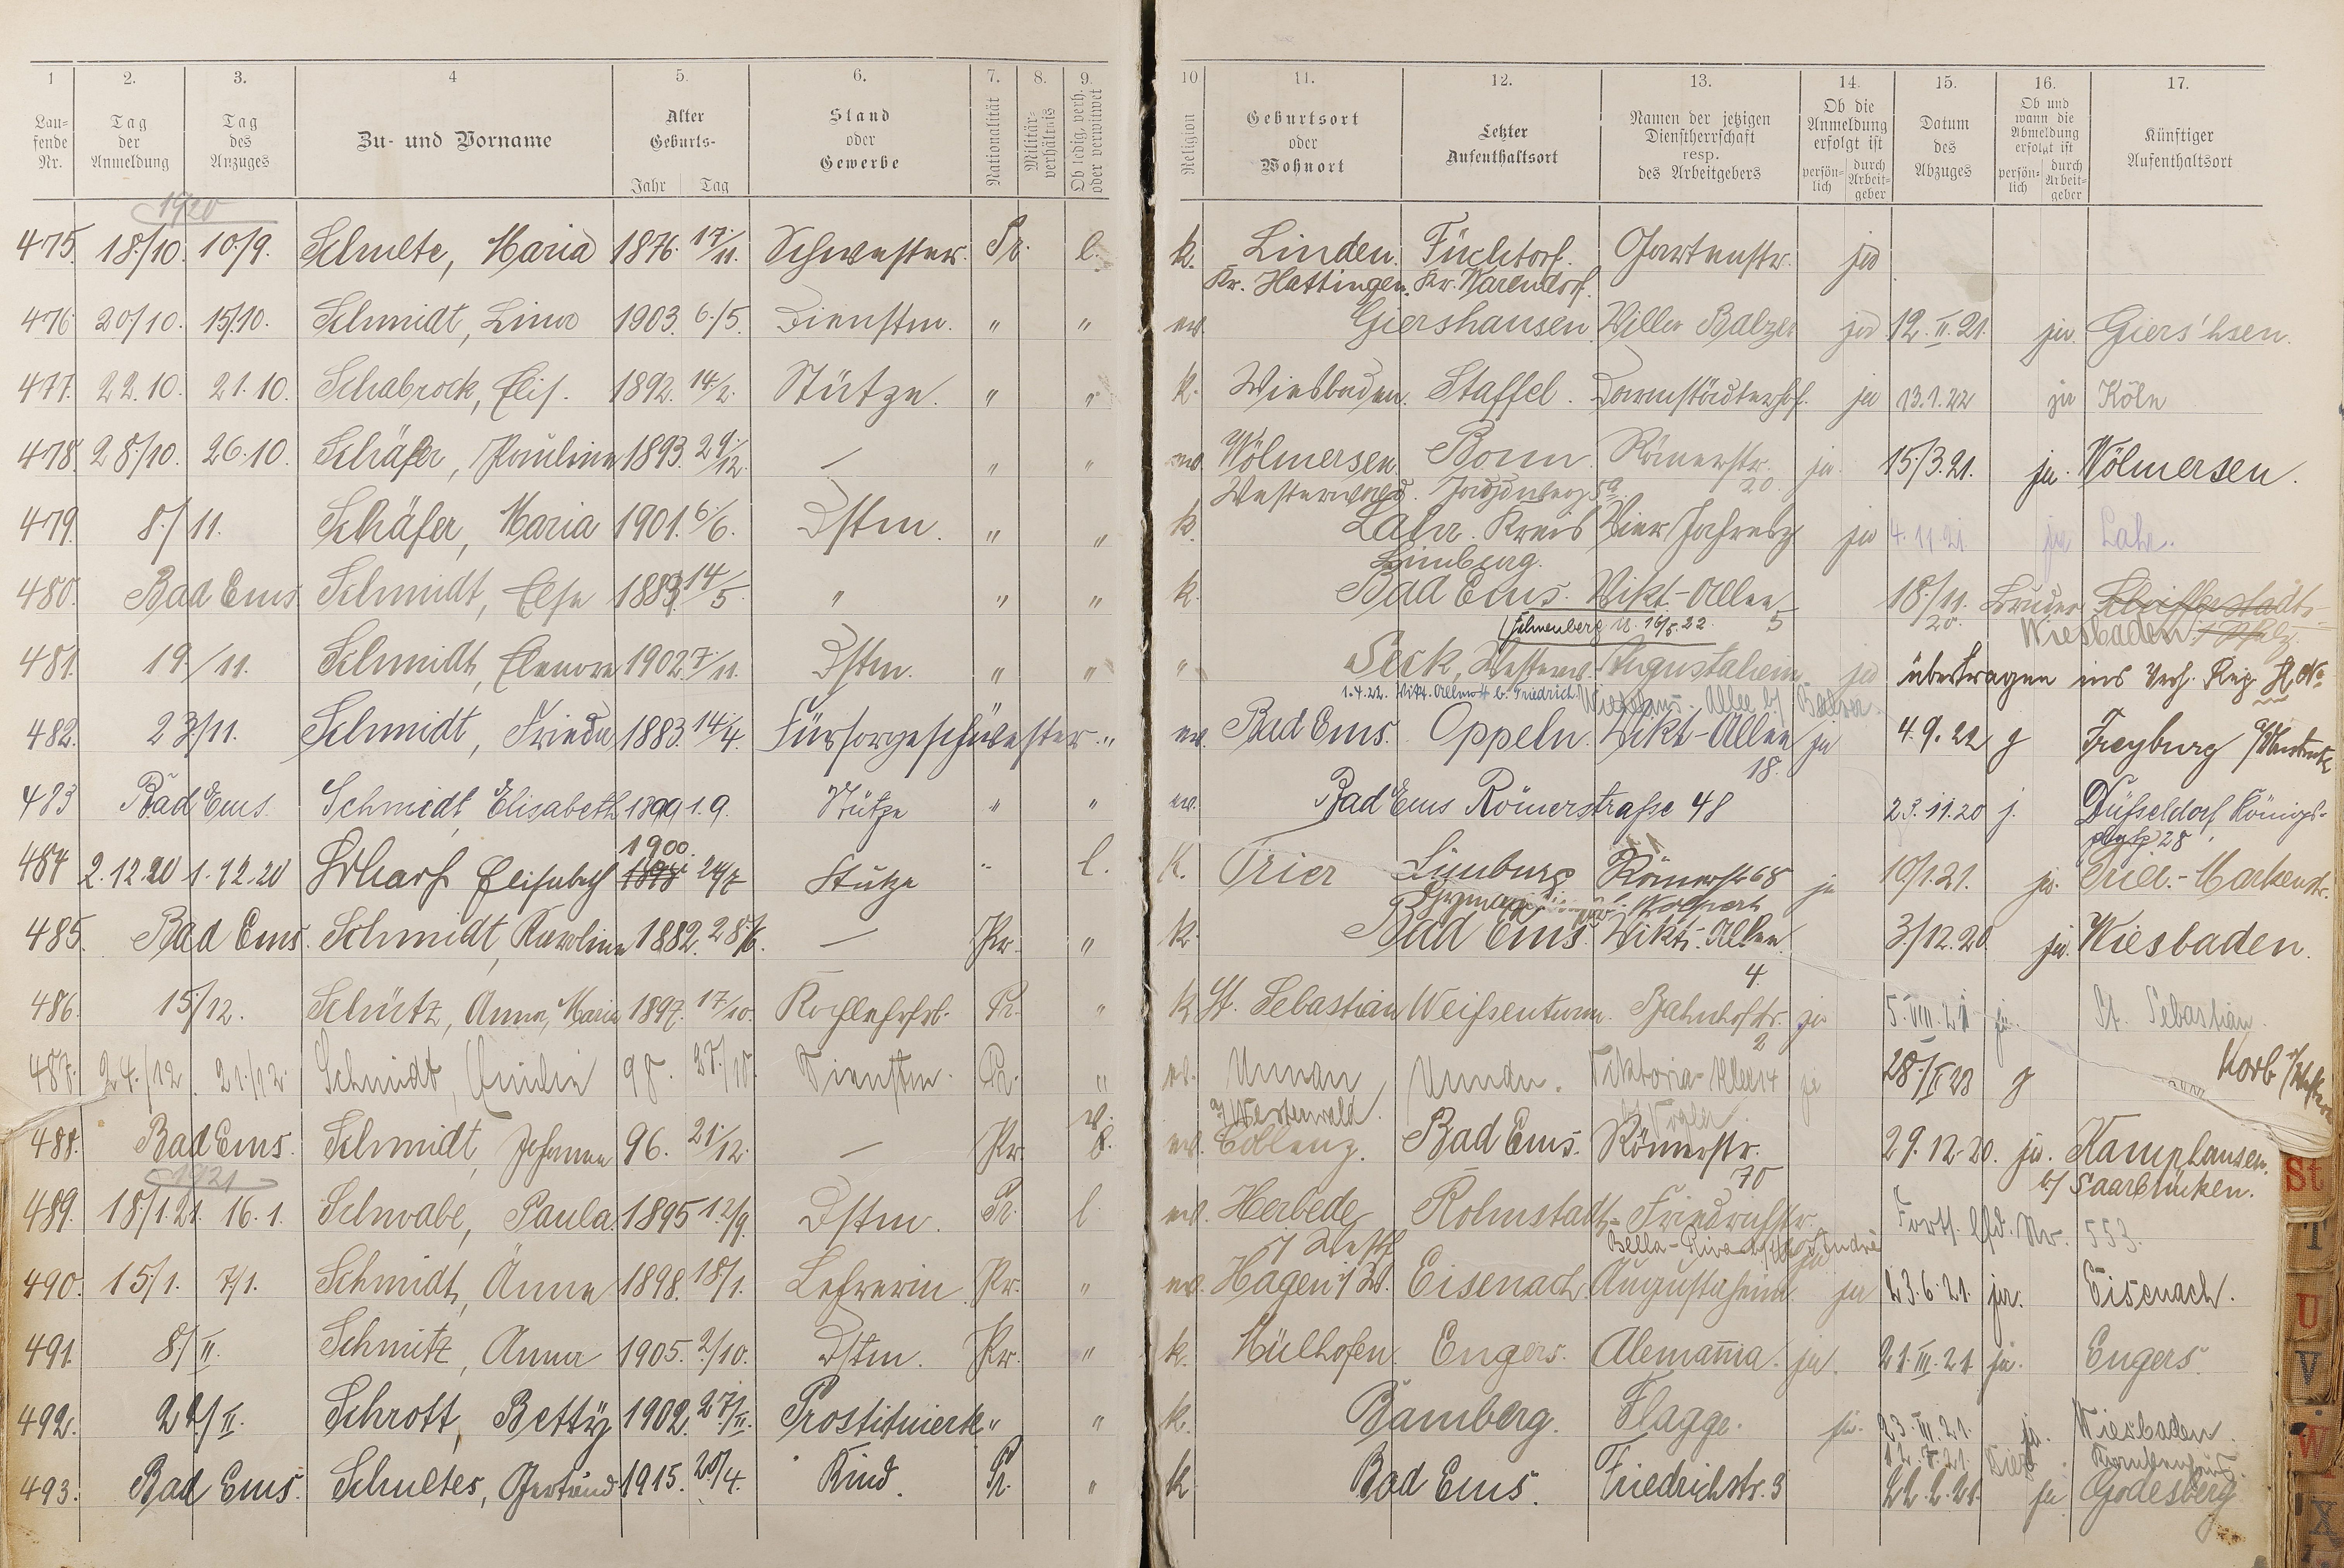 1 2. 3. 4 5. 6. 7. 8. 9. 10 11. 12. 13. 14. 15. 16. 17.
Laufende Nr.
Tag der Anmeldung
Tag des Anzuges
Zu- und Vorname
Alter Geburts- Jahr Tag
Stand oder Gewerbe
Nationalität
Militärverhältnis
Ob ledig, verh. oder verwitwet
Religion
Geburtsort oder Wohnort
Letzter Aufenthaltsort
Namen der jetzigen Dienstherrschaft resp. des Arbeitgebers
Ob die Anmeldung erfolgt ist persönlich durch Arbeitgeber
Datum des Abzuges
Ob und wann die Abmeldung erfolgt ist persönlich durch Arbeitgeber
Künftiger Aufenthaltsort
1920
475. 18./10. 10./9. Schulte, Maria 1876. 17./11. Schwester. Pr. l. k. Linden. Füchtorf. Gartenstr. ja
Kr. Hattingen. Kr. Warendorf.
476 20/10. 15/10. Schmidt, Lina 1903. 6./5. Dienstm. " " ev. Giershausen Villa Balzer ja 12.II.21. ja. Giers'hsen.
477. 22.10. 21.10. Schabrock, Elis. 1892. 14./2. Stütze. " " k. Wiesbaden. Staffel. Darmstädterhof. ja 13.1.22 ja Köln
478. 28./10. 26.10. Schäfer, Pauline 1893. 29./12. — " " ev. Wölmersen Bonn. Römerstr. ja. 15./3.21. ja. Wölmersen.
Westerwald. 20.
479. 8./11. Schäfer, Maria 1901. 6/6. Dstm. " " k. Lahr. Kreis Vier Jahresz ja 4.11.21. ja Lahr.
Limburg.
480. Bad Ems. Schmidt, Else 1883 14/5. " " " k. Bad Ems. Vikt-Allee 5 18./11. 20. Bruder
16/5.22. Wiesbaden
481. 19./11. Schmidt, Elenore 1902. 7./11. Dstm. " " " Seck, Westerw. Augustaheim ja übertragen ins Verh. Reg. H. No
1.4.22. Vikt. Allee 4 b. Friedrich
482. 23./11. Schmidt, Frieda 1883. 14./4. Fürsorgeschwester. " ev. Bad Ems. Oppeln. Vikt-Allee ja 4.9.22 g Freyburg
18.
483 Bad Ems. Schmidt Elisabeth 1899 1.9. Stütze " " ev. Bad Ems Römerstraße 48 23.11.20 j. Düsseldorf Königs-
28
1900.
484 2.12.20 1.12.20 Scharf Elisabeth 1898 24/7 Stütze " l. k. Trier Limburg Römerstr 68 ja 10/1.21. ja. Trier.
485. Bad Ems. Schmidt, Karoline 1882. 28./6. — Pr. " k. Bad Ems. Vikt. Allee 3/12.20. ja. Wiesbaden.
4.
486. 15/12. Schütz, Anna, Maria 1897. 17/10. Kochlehrfrl. Pr. " k St. Sebastian Weißenturm. Bahnhofstr. ja 5.VIII.21 ja. St. Sebastian.
2
487. 24./12. 21./12. Schmidt, Emilie 98. 27./10. Dienstm. Pr. " ev. Unnau Unnau. Viktoria-Allee 14 ja 28./II 23 g Korb
a/ Westerwald.
488. Bad Ems. Schmidt, Johanna 96. 21/12. — Pr. l. ev. Coblenz. Bad Ems. Römerstr. 29.12.20. ja. Kamphausen.
70 b/ Saarbrücken.
1921
489. 18./1.21. 16.1. Schwabe, Paula. 1895 12/9. Dstm. Pr. l ev. Herbede Rohnstadt- Friedrichstr. Forts. lfd. Nr. 553.
i/ Westf. Bella-Riva
490. 15./1. 7/1. Schmidt, Änne 1898. 18/1. Lehrerin Pr. " ev. Hagen i/W. Eisenach. Augustaheim. ja 23.6.21. ja. Eisenach.
491. 8./II. Schmitz, Anna 1905. 2/10. Dstm. Pr. " k. Mülhofen. Engers. Alemannia. ja. 21.III.21 ja. Engers.
492. 21./II. Schrott, Betty 1902. 27./II. Prostituierte " " k. Bamberg. Flagge. ja. 23.III.21. ja. Wiesbaden.
493. Bad Ems. Schultes, Gertrud 1915. 20/4. Kind. Pr. " k Bad Ems. Friedrichstr. 3 22.2.21. ja Godesberg
St
T
U
V
W
X